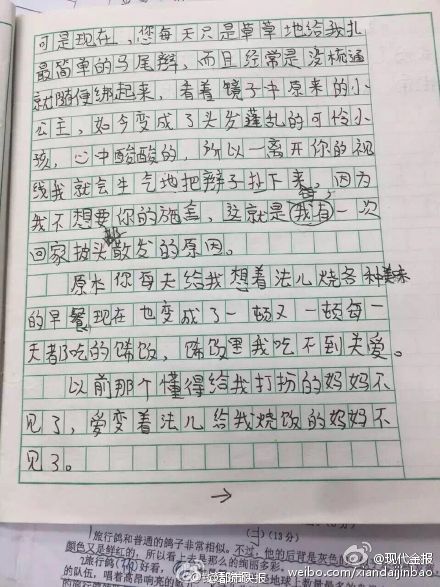 可是现在,您每天只是草草地给我扎
最简单的马尾辫,而且经常是没梳通
就随便绑起来,看着镜子中原来的小
公主,如今变成了头发蓬乱的可怜小
孩,心中酸酸的,所以一离开你的视
线我就会生气地把辫子扯下来,因为
我不想要你的施舍,这就是我有一次
回家披头散发的原因。
原本你每天给我想着法儿烧各种美味
的早餐现在也变成了一顿又一顿每一
天都吃的稀饭,稀饭里我吃不到关爱。
以前那个懂得给我打扮的妈妈不
见了,爱变着法儿给我烧饭的妈妈不
见了。
→
(二) (13分)
旅行鸽和普通的鸽子非常相似。不过,他的后背是灰色
颜色又是鲜红的,所以看上去是那么的绚丽多彩。
旅行鸽
好看,
的队伍,唱着高昂响亮的
地球上数量最多的
@现代金报
weibo.com/xiandaijinbao